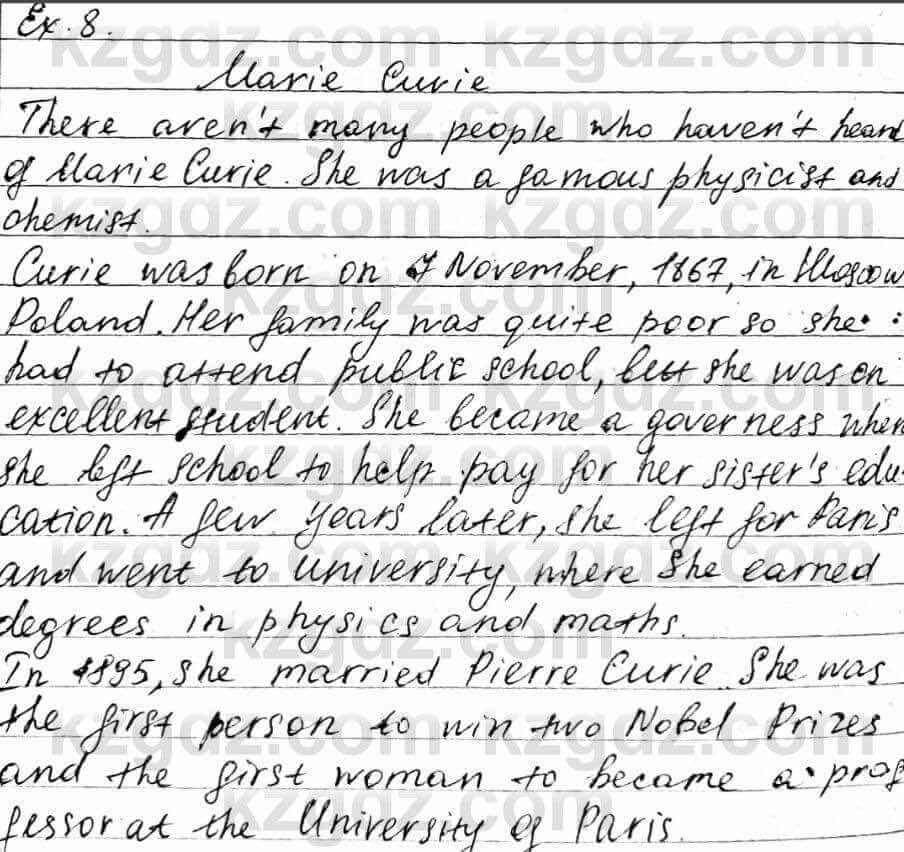 Ex. 8.
Marie Curie
There aren't many people who haven't heard
of Marie Curie. She was a famous physicist and
chemist.
Curie was born on 7 November, 1867, in Moscow
Poland. Her family was quite poor so she
had to attend public school, but she was en
excellent student. She became a governess when
she left school to help pay for her sister's edu-
cation. A few years later, she left for Paris
and went to university, where she earned
degrees in physics and maths.
In 1895, she married Pierre Curie. She was
the first person to win two Nobel Prizes
and the first woman to became a prof
fessor at the University of Paris.
kzgdz.com